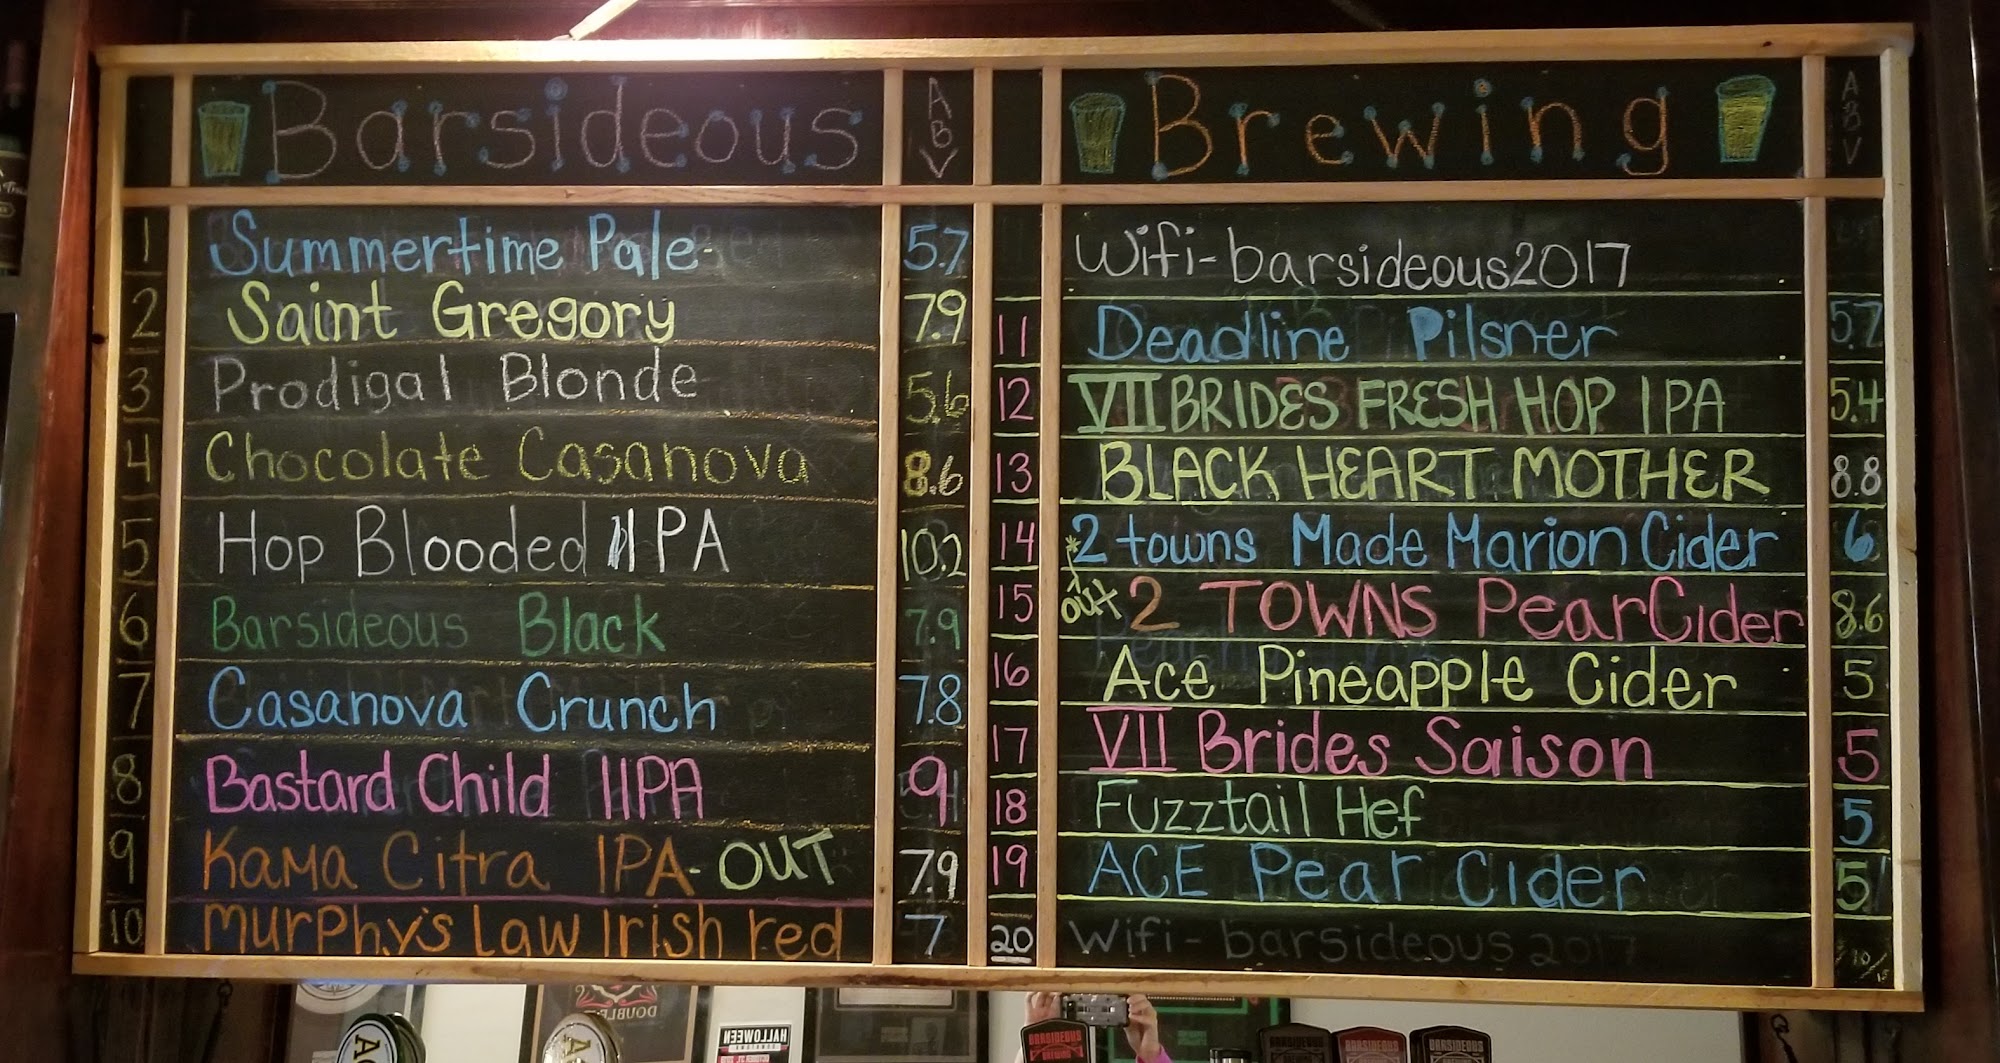 Barsideous
ABV
Brewing
ABV
1 Summertime Pale 5.7
2 Saint Gregory 7.9
3 Prodigal Blonde 5.6
4 Chocolate Casanova 8.6
5 Hop Blooded IIPA 10.2
6 Barsideous Black 7.9
7 Casanova Crunch 7.8
8 Bastard Child IIPA 9
9 Kama Citra IPA-OUT 7.9
10 Murphy's Law Irish red 7
Wifi-barsideous2017
11 Deadline Pilsner 5.7
12 VII BRIDES FRESH HOP IPA 5.4
13 BLACK HEART MOTHER 8.8
14 *2 towns Made Marion Cider 6
15 out 2 TOWNS Pear Cider 8.6
16 Ace Pineapple Cider 5
17 VII Brides Saison 5
18 Fuzztail Hef 5
19 ACE Pear Cider 5
20 Wifi-barsideous2017
DOUBLE
HALLOWEEN
BARSIDEOUS
BREWING
BARSIDEOUS
BARSIDEOUS
BARSIDEOUS